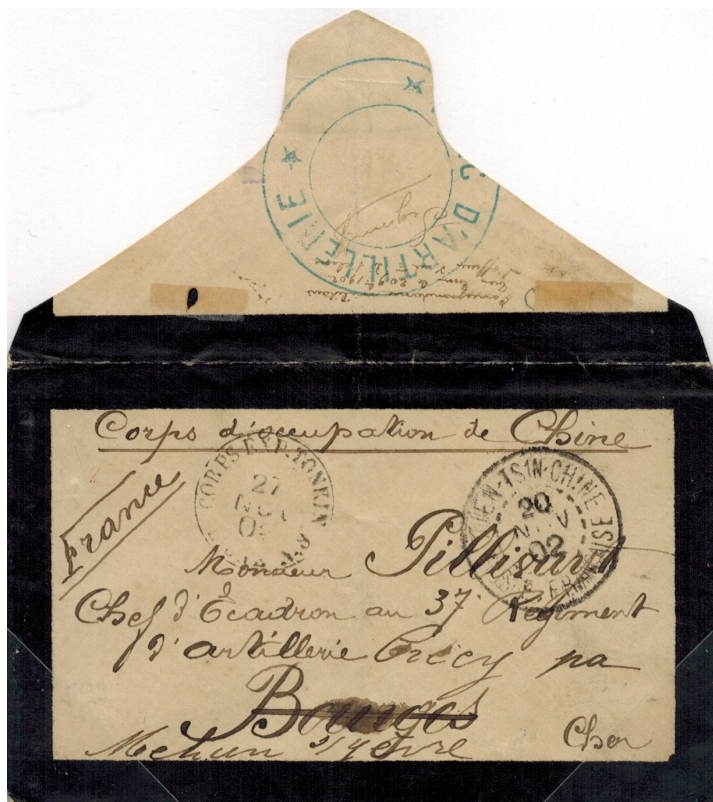 D'ARTILLERIE
Corps d'occupation de Chine
France
CORPS EXP. TONKIN
27
NOV
TIEN-TSIN-CHINE
20
NOV
02
POSTE FRANÇAISE
Monsieur Pillivuyt
Chef d'Écadron au 37 Régiment
d'artillerie Crécy pa
Bourges
Mehun s/yèvre Cher